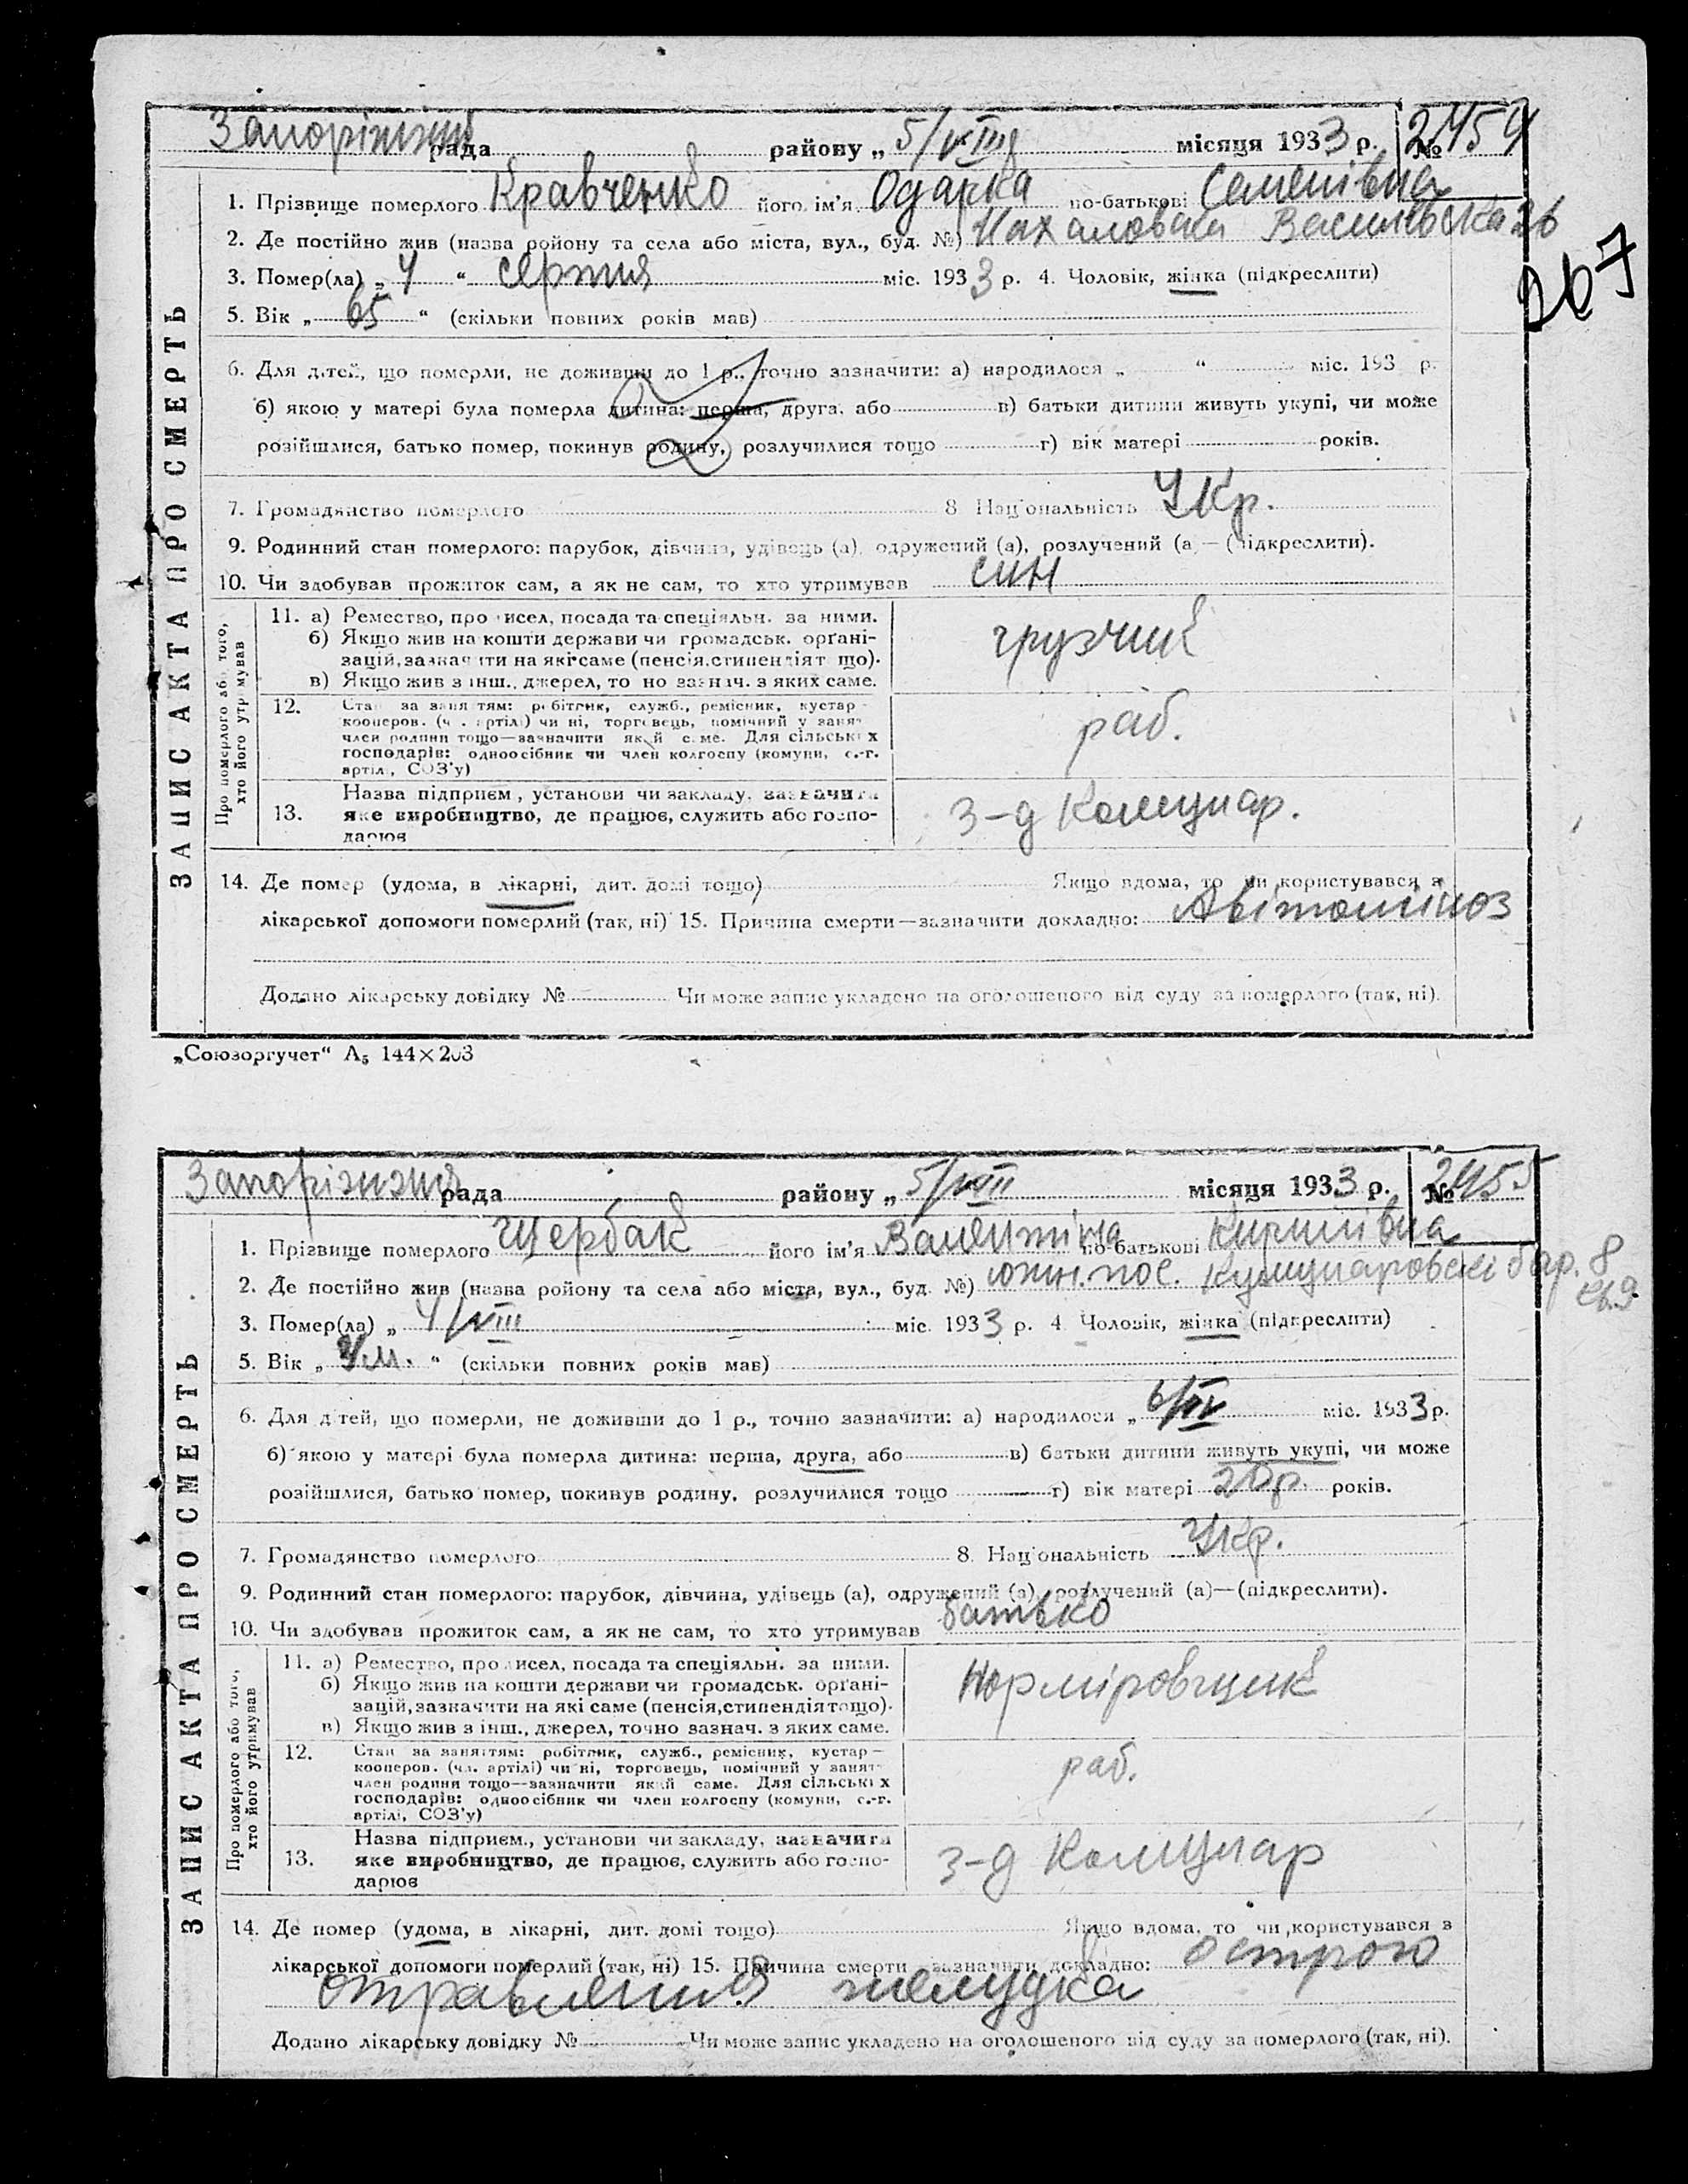 Запоріжжя рада районy „ 5/VIII місяця 1933 р. № 2454
267
ЗАПИС АКТА ПРО СМЕРТЬ
1. Прізвище померлого Кравченко його ім'я Одарка по-батькові Семенівна
2. Де постійно жив (назва ройону та села або міста, вул., буд. №) Нахаловка Василівська 26
3. Помер(ла) „ 4 “ серпня міс. 1933 р. 4. Чоловік, жінка (підкреслити)
5. Вік „ 65 “ (скільки повних років мав)
6. Для дітей, що померли, не доживши до 1 р., точно зазначити: а) народилося „ “ міс. 193 р.
б) якою у матері була померла дитина: перша, друга, або в) батьки дитини живуть укупі, чи може
розійшлися, батько помер, покинув родину, розлучилися тощо г) вік матері років.
7. Громадянство померлого 8 Національність Укр.
9. Родинний стан померлого: парубок, дівчина, удівець (а), одружений (а), розлучений (а)—(підкреслити).
10. Чи здобував прожиток сам, а як не сам, то хто утримував син
Про померлого або того, хто його утримував
11. а) Ремество, промисел, посада та спеціяльн. за ними.
б) Якщо жив на кошти держави чи громадськ. орґані-
зацій, зазначити на які саме (пенсія, стипендіят що).
в) Якщо жив з інш., джерел, точно зазнач. з яких саме.
грузчик
12. Стан за заняттям: робітник, служб., ремісник, кустар—
кооперов. (чл. артілі) чи ні, торговець, помічний у занят
член родини тощо—зазначити який саме. Для сільських
господарів: одноосібник чи член колгоспу (комуни, с.-г.
артілі, СОЗ'у)
раб.
13. Назва підприєм., установи чи закладу, зазначити
яке виробництво, де працює, служить або госпо-
дарює
з-д Комунар.
14. Де помер (удома, в лікарні, дит. домі тощо) Якщо вдома, то чи користувався з
лікарської допомоги померлий (так, ні) 15. Причина смерти—зазначити докладно: Авітоміноз
Додано лікарську довідку № Чи може запис укладено на оголошеного від суду за померлого (так, ні).
„Союзоргучет“ А₅ 144×203
Запоріжжя рада району „ 5/VIII місяця 1933 р. № 2455
ЗАПИС АКТА ПРО СМЕРТЬ
1. Прізвище померлого Щербак його ім'я Валентіна по-батькові Кирилівна
2. Де постійно жив (назва ройону та села або міста, вул., буд. №) южн. пос. бар. 8
кв. 9
3. Помер(ла) „ 4/VIII міс. 1933 р. 4 Чоловік, жінка (підкреслити)
5. Вік „ м. “ (скільки повних років мав)
6. Для дітей, що померли, не доживши до 1 р., точно зазначити: а) народилося „ 6/IV міс. 1933 р.
б) якою у матері була померла дитина: перша, друга, або в) батьки дитини живуть укупі, чи може
розійшлися, батько помер, покинув родину, розлучилися тощо г) вік матері 20 р. років.
7. Громадянство померлого 8. Національність Укр.
9. Родинний стан померлого: парубок, дівчина, удівець (а), одружений (а), розлучений (а)—(підкреслити).
10. Чи здобував прожиток сам, а як не сам, то хто утримував батько
Про померлого або того, хто його утримував
11. а) Ремество, промисел, посада та спеціяльн. за ними.
б) Якщо жив на кошти держави чи громадськ. орґані-
зацій, зазначити на які саме (пенсія, стипендія тощо).
в) Якщо жив з інш., джерел, точно зазнач. з яких саме.
Норміровщик
12. Стан за заняттям: робітник, служб., ремісник, кустар—
кооперов. (чл. артілі) чи ні, торговець, помічний у занят
член родини тощо—зазначити який саме. Для сільських
господарів: одноосібник чи член колгоспу (комуни, с.-г.
артілі, СОЗ'у)
раб.
13. Назва підприєм., установи чи закладу, зазначити
яке виробництво, де працює, служить або госпо-
дарює
з-д Комунар
14. Де помер (удома, в лікарні, дит. домі тощо) Якщо вдома, то чи користувався з
лікарської допомоги померлий (так, ні) 15. Причина смерти зазначити докладно: острою
отравлення желудка
Додано лікарську довідку № Чи може запис укладено на оголошеного від суду за померлого (так, ні).